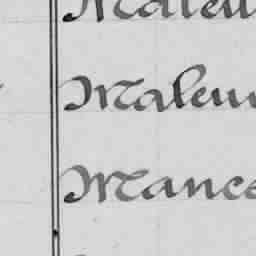 Maleu
Maleu
Mance